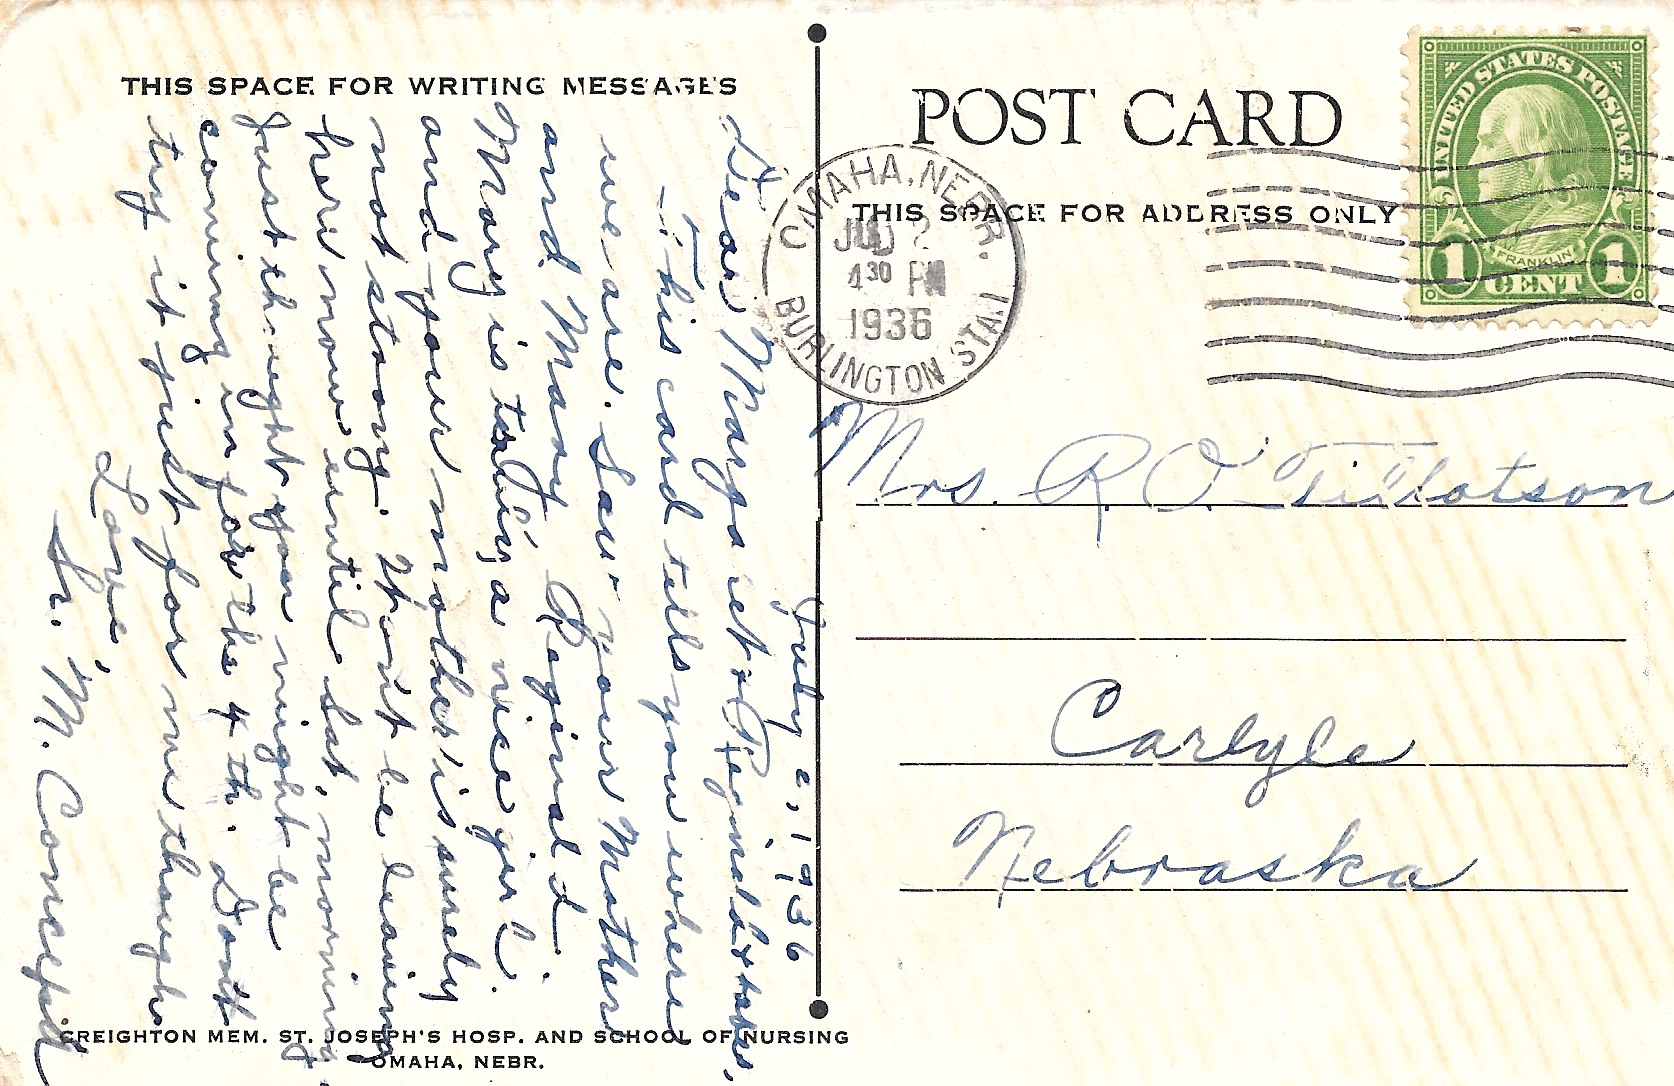 THIS SPACE FOR WRITING MESSAGES
July 2, 1936
Dear Margaret + Reginald + tots,
This card tells you where
we are. Saw your Mother
and Mary Reginald.
Mary is a nice girl.
and your mother is surely
not strong. Won't be leaving
here now until Sat. morning
Just thought you might be
coming in for the 4th. Don't
try it just for me though
Love,
Sr. M. Concepta
CREIGHTON MEM. ST. JOSEPH'S HOSP. AND SCHOOL OF NURSING
OMAHA, NEBR.
POST CARD
THIS SPACE FOR ADDRESS ONLY
OMAHA, NEBR.
JUL 2
4 30 PM
1936
BURLINGTON STA.
UNITED STATES POSTAGE
FRANKLIN
1 CENT 1
Mrs. R. O. Tillotson
Carlyle
Nebraska